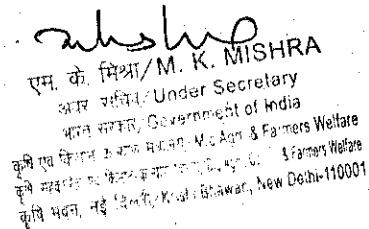 एम. के. मिश्रा/M. K. MISHRA
अवर सचिव/Under Secretary
भारत सरकार/Government of India
कृषि एवं किसान कल्याण Agri. & Farmers Welfare
कृषि & Farmers Welfare
कृषि भवन, नई दिल्ली/Krishi Bhawan, New Delhi-110001